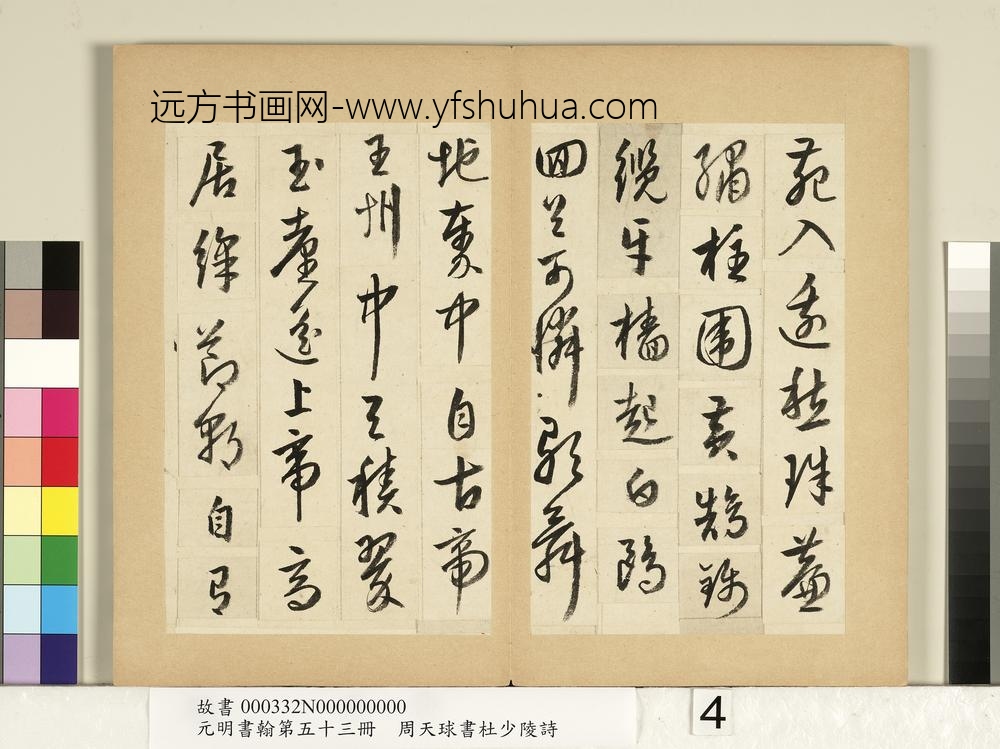 远方书画网-www.yfshuhua.com
苑入邊愁珠簾
繡柱圍黃鵠錦
纜牙檣起白鷗
回首可憐歌舞
地秦中自古帝
王州中天積翠
玉臺遙上帝高
居絳節朝自有
故書 000332N000000000
元明書翰第五十三冊 周天球書杜少陵詩
4